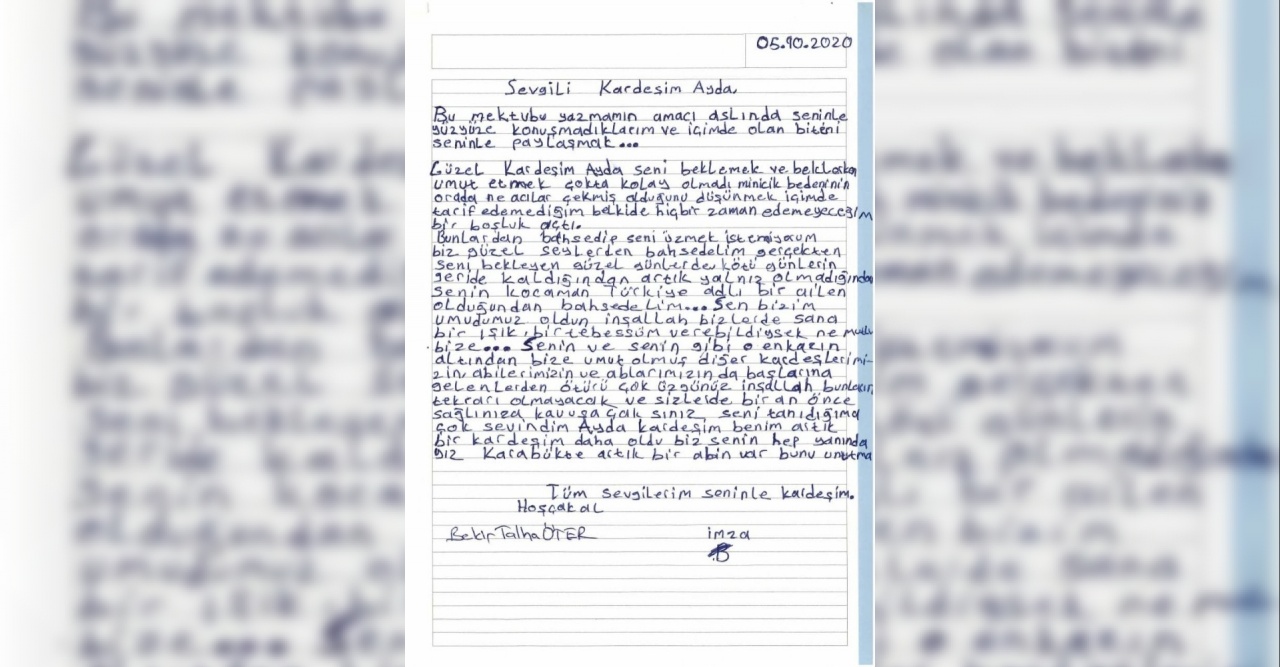 05.10.2020
Sevgili Kardeşim Ayda
Bu mektubu yazmamın amacı aslında seninle
yüzyüze konuşmadıklarım ve içimde olan biteni
seninle paylaşmak...
Güzel Kardeşim Ayda seni beklemek ve beklerken
umut etmek çokta kolay olmadı minicik bedeninin
orada ne acılar çekmiş olduğunu düşünmek içimde
tarif edemediğim belkide hiçbir zaman edemeyeceğim
bir boşluk açtı.
Bunlardan bahsedip seni üzmek istemiyorum
biz güzel şeylerden bahsedelim gerçekten
seni bekleyen güzel günlerde kötü günlerin
geride kaldığından artık yalnız olmadığından
senin kocaman Türkiye adlı bir ailen
olduğundan bahsedelim... Sen bizim
umudumuz oldun inşallah bizlerde sana
bir ışık, bir tebessüm verebildiysek ne mutlu
bize... Senin ve senin gibi o enkazın
altından bize umut olmuş diğer kardeşlerimi-
zin abilerimizin ve ablarımızın da başlarına
gelenlerden ötürü çok üzgünüz inşallah bunların
tekrarı olmayacak ve sizlerde bir an önce
sağlınıza kavuşacak sınız seni tanıdığıma
çok sevindim Ayda kardeşim benim artık
bir kardeşim daha oldu biz senin hep yanında
yız Karabükte artık bir abin var bunu unutma
Tüm sevgilerim seninle kardeşim.
Hoşçakal
Bekir Talha ÖTER imza
B